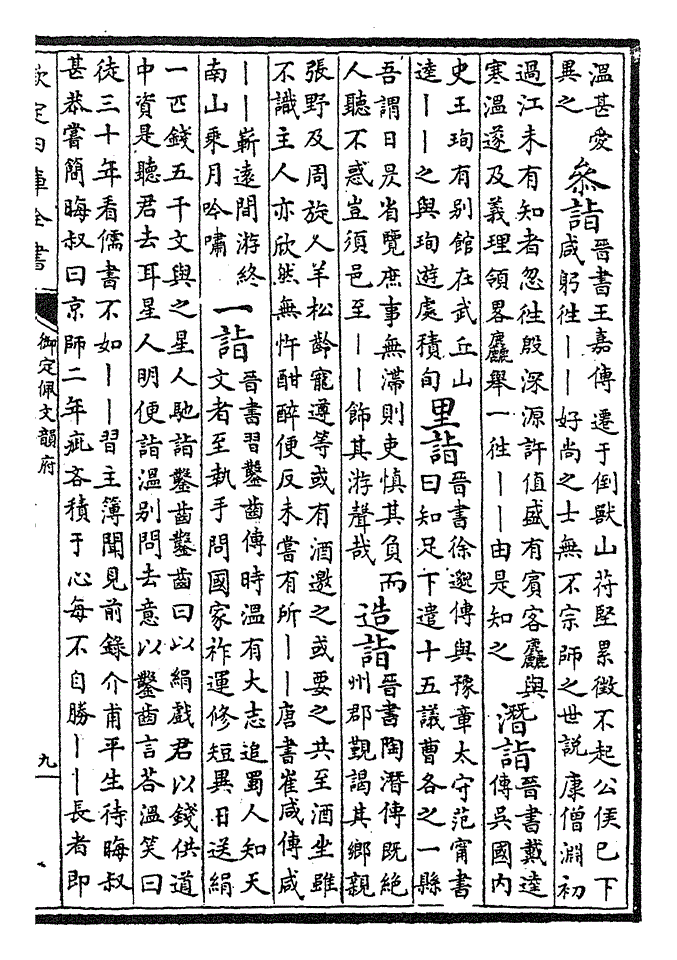 溫甚愛
異之
叅詣
晉書王嘉傳遷于倒獸山苻堅累徵不起公侯已下
咸躬往——好尚之士無不宗師之世說康僧淵初
過江未有知者忽往殷深源許值盛有賓客麤與
寒溫遂及義理領畧麤舉一往——由是知之
潛詣
晉書戴逵
傳吳國内
史王珣有别館在武丘山
逵——之與珣遊處積旬
里詣
晉書徐邈傳與豫章太守范甯書
曰知足下遣十五議曹各之一縣
吾謂日昃省覽庶事無滯則吏慎其負而
人聽不惑豈須邑至——飾其游聲哉
造詣
晉書陶潛傳既絶
州郡覲謁其鄉親
張野及周旋人羊松齡寵遵等或有酒邀之或要之共至酒坐雖
不識主人亦欣然無忤酣醉便反未嘗有所——唐書崔咸傳咸
——嶄遠間游終
南山乘月吟嘯
一詣
晉書習鑿齒傳時溫有大志追蜀人知天
文者至執手問國家祚運修短異日送絹
一匹錢五千文與之星人馳詣鑿齒鑿齒曰以絹戲君以錢供道
中資是聽君去耳星人明便詣溫别問去意以鑿齒言荅溫笑曰
徒三十年看儒書不如——習主簿聞見前錄介甫平生待晦叔
甚恭嘗簡晦叔曰京師二年疵吝積于心每不自勝——長者即
欽定四庫全書
御定佩文韻府
九